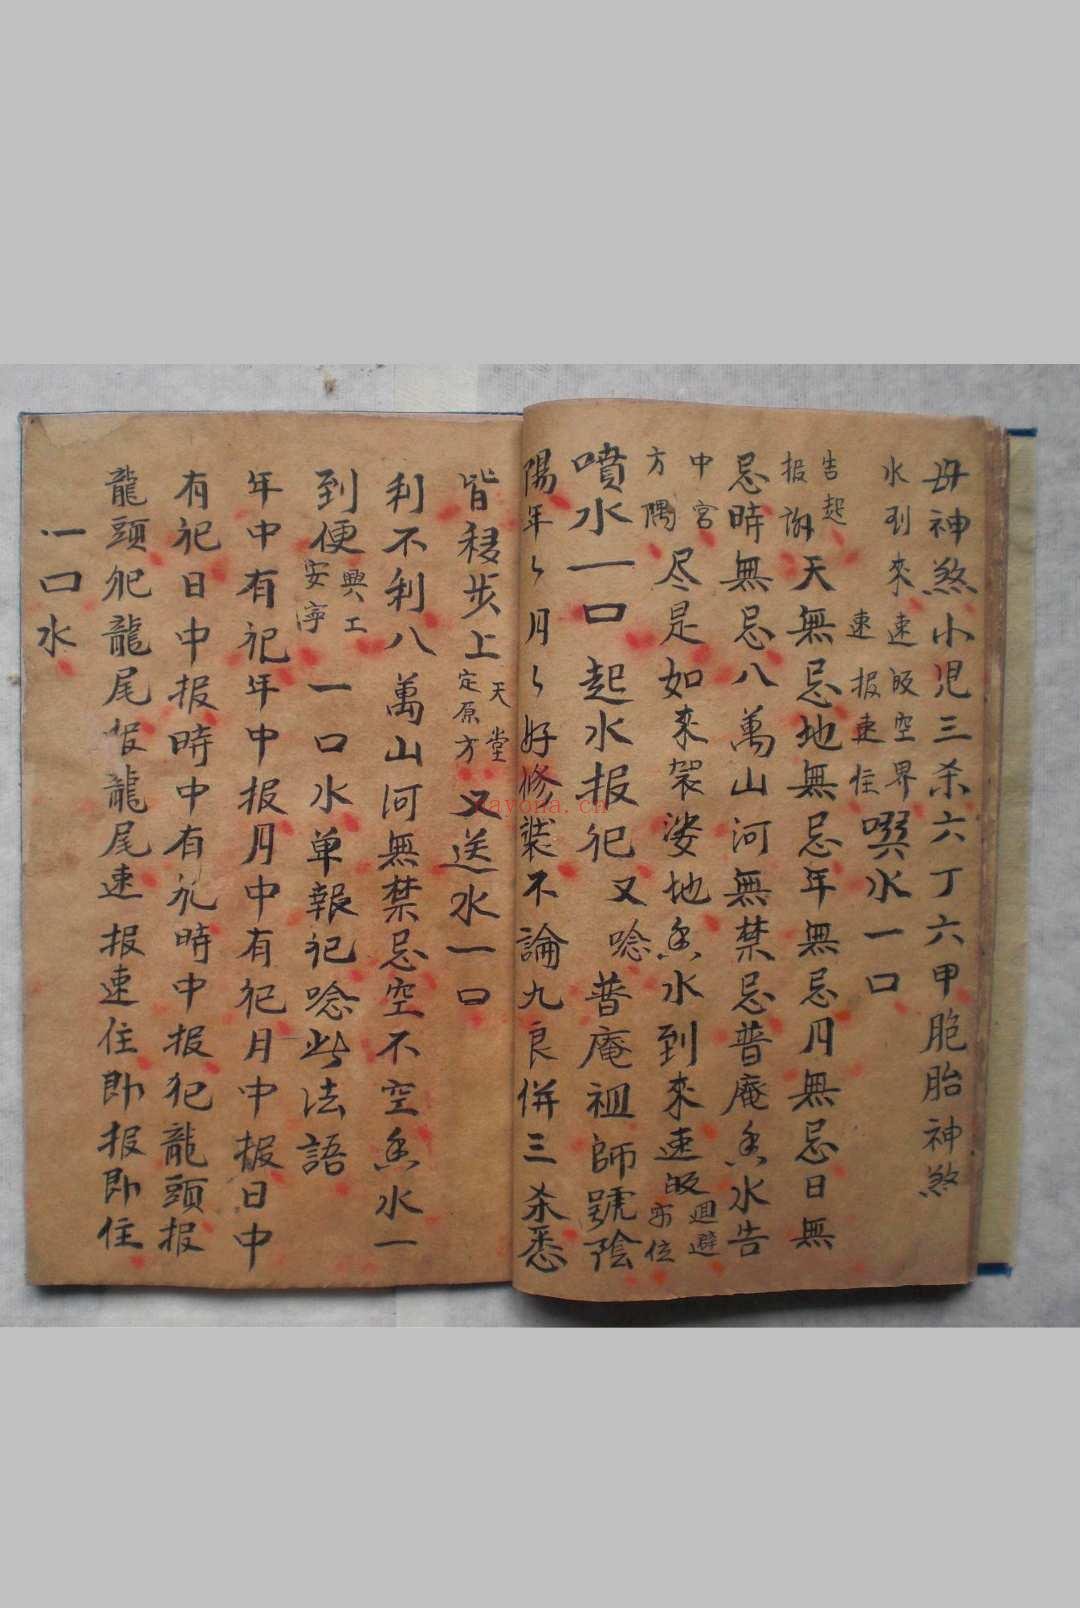 毋神煞小児三杀六丁六甲胞胎神煞
水到來速皈空界
速报速住
噀水一口
告起
报謝
天無忌地無忌年無忌月無忌日無
忌時無忌八萬山河無禁忌普庵香水告
中宮
方隅
尽是如來袈娑地香水到來速皈
迴避
本位
噴水一口 起水报犯 又唸普庵祖師號陰
陽年々月々好修裝不論九良併三杀悉
皆移步上
天堂
定原方
又送水一口
利不利八萬山河無禁忌空不空香水一
到便
興工
安寧
一口水单報犯唸此法語
年中有犯年中报月中有犯月中报日中
有犯日中报時中有犯時中报犯龍頭报
龍頭犯龍尾报龍尾速报速住即报即住
一口水
nayona.cn